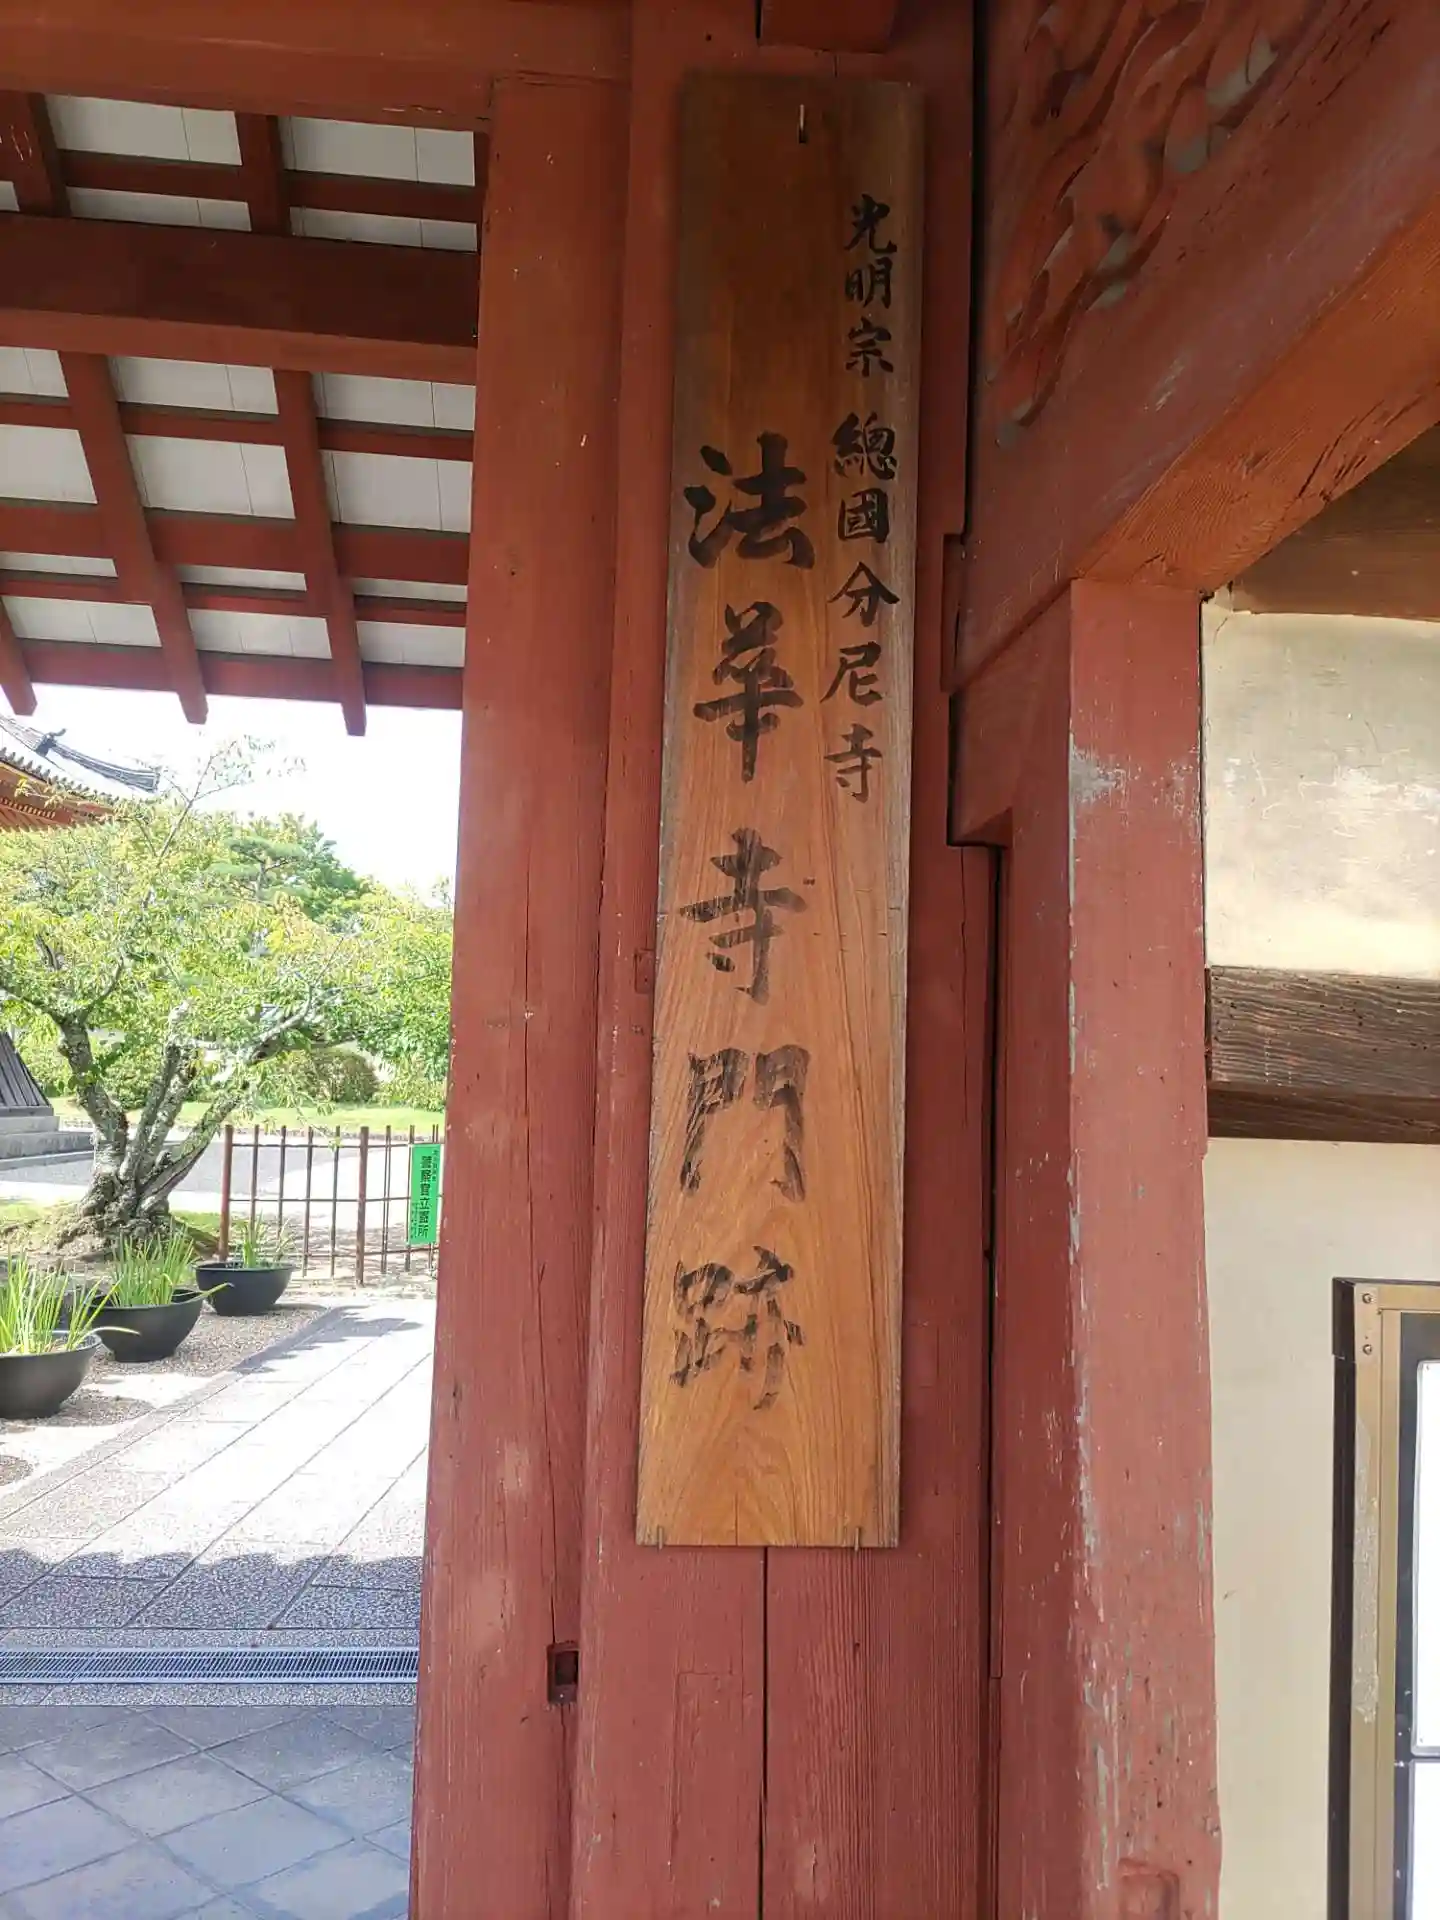 光明宗 總國分尼寺
法華寺門跡
警察官立寄所